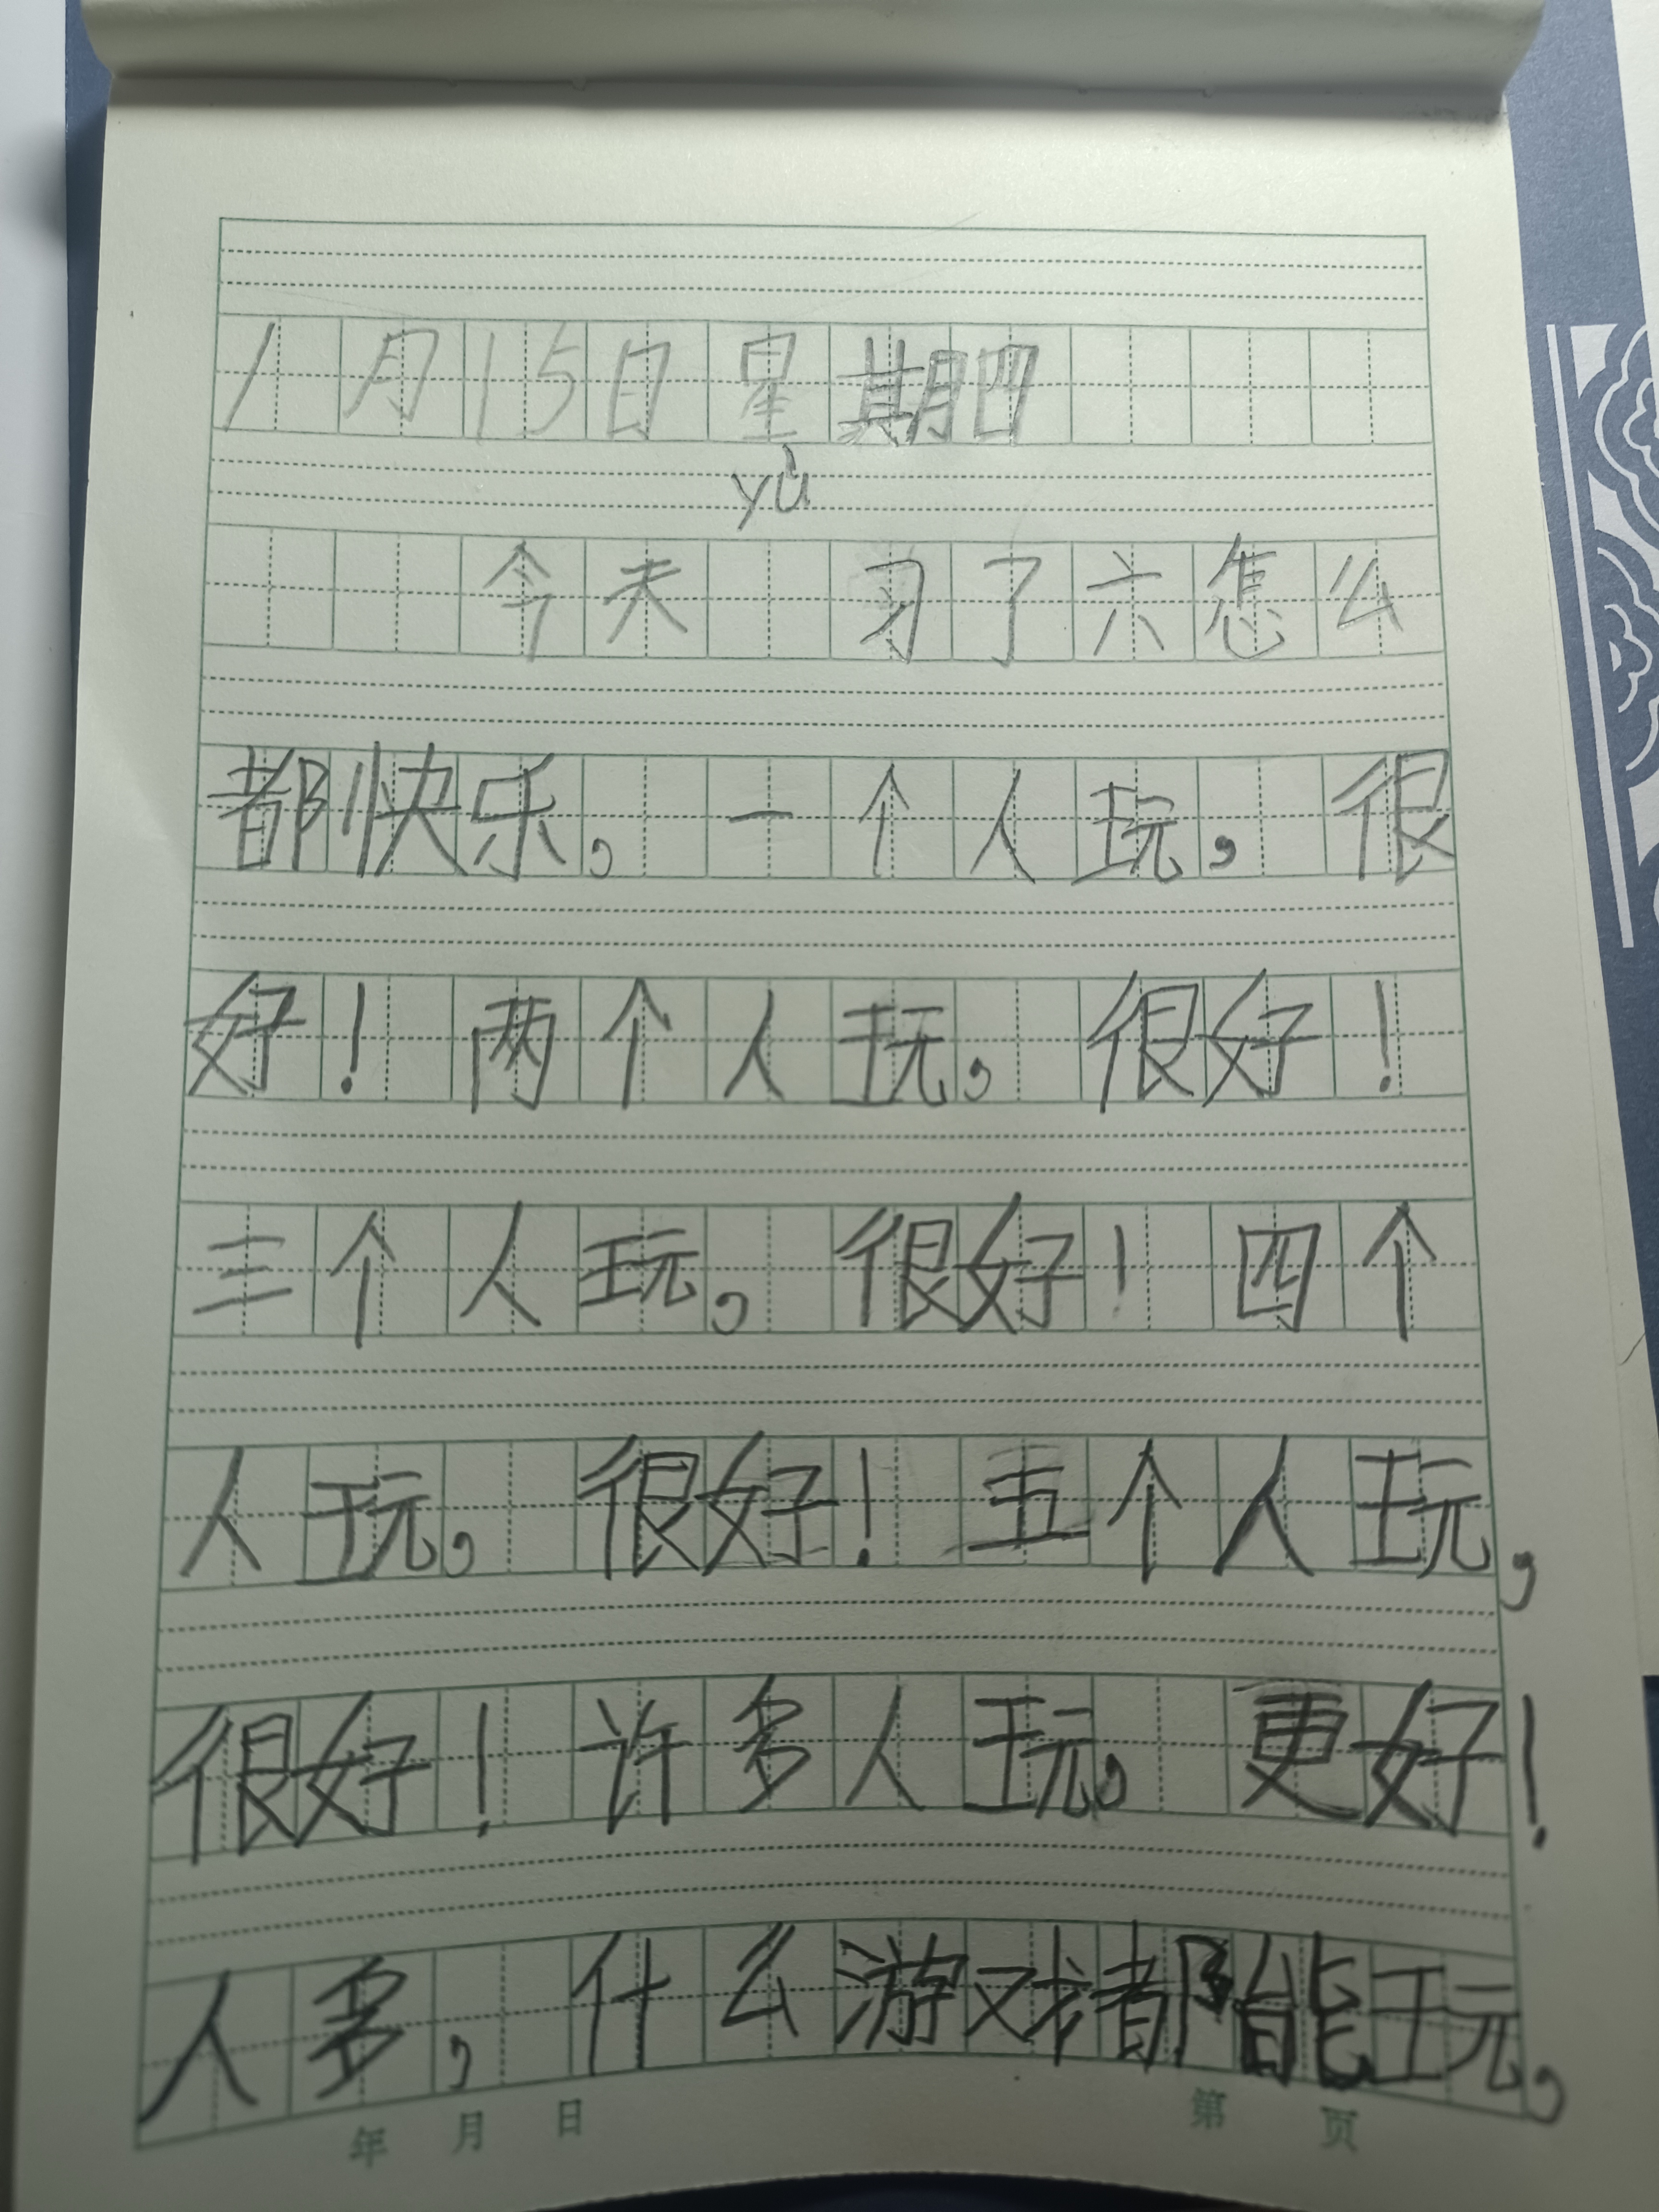 1月15日星期四
yù
今天 习了六怎么
都快乐,一个人玩,很
好!两个人玩,很好!
三个人玩,很好!四个
人玩,很好!五个人玩,
很好!许多人玩,更好!
人多,什么游戏都能玩,
年 月 日 第 页